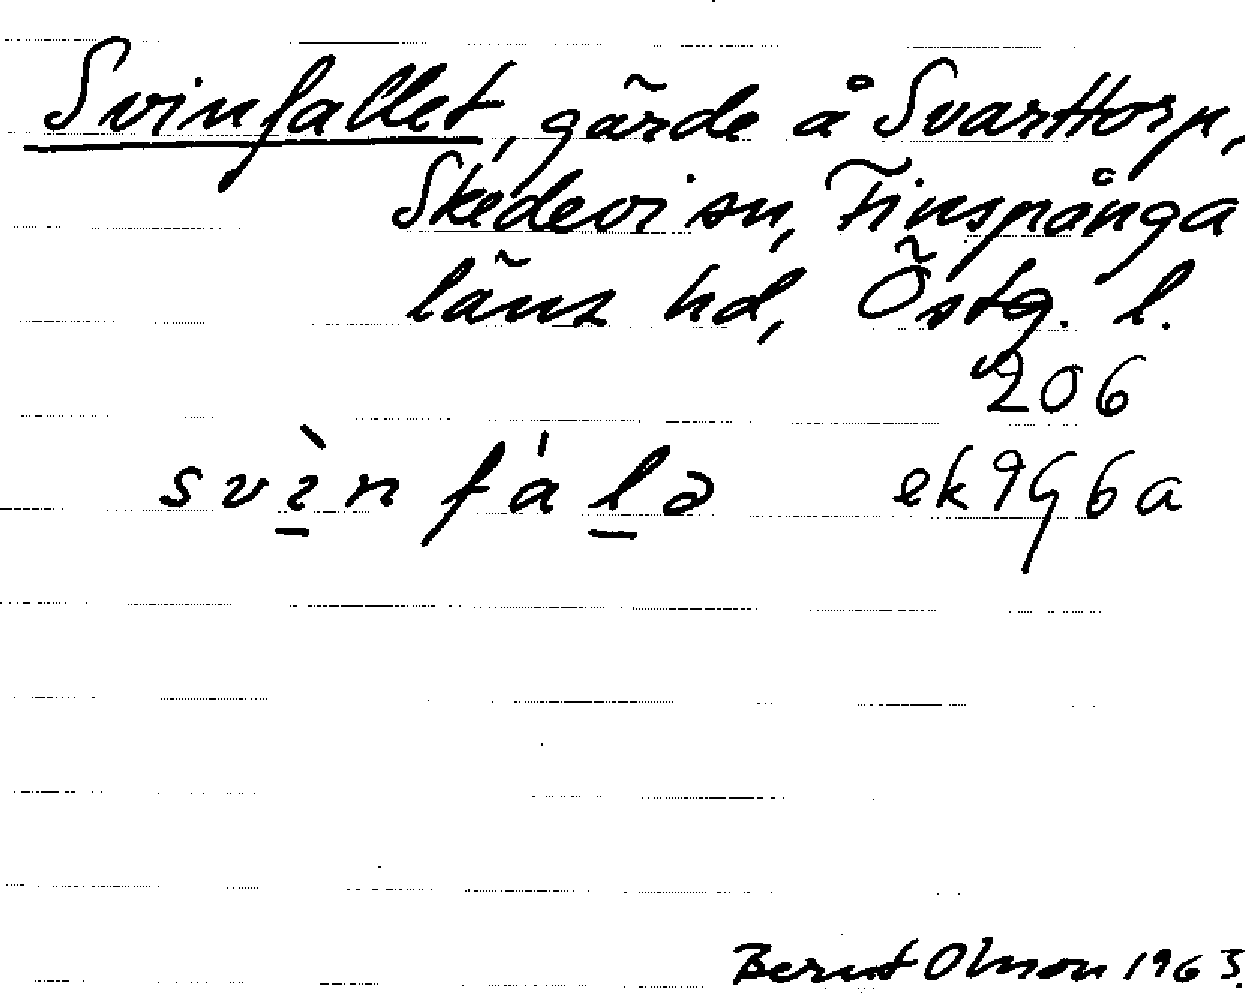 Svinfallet, gärde å Svarttorp,
Skedevi sn, Finspånga
läns hd, Östg. l.
206
svìnfálə ek9G6a
Bernt Olsson 1963.